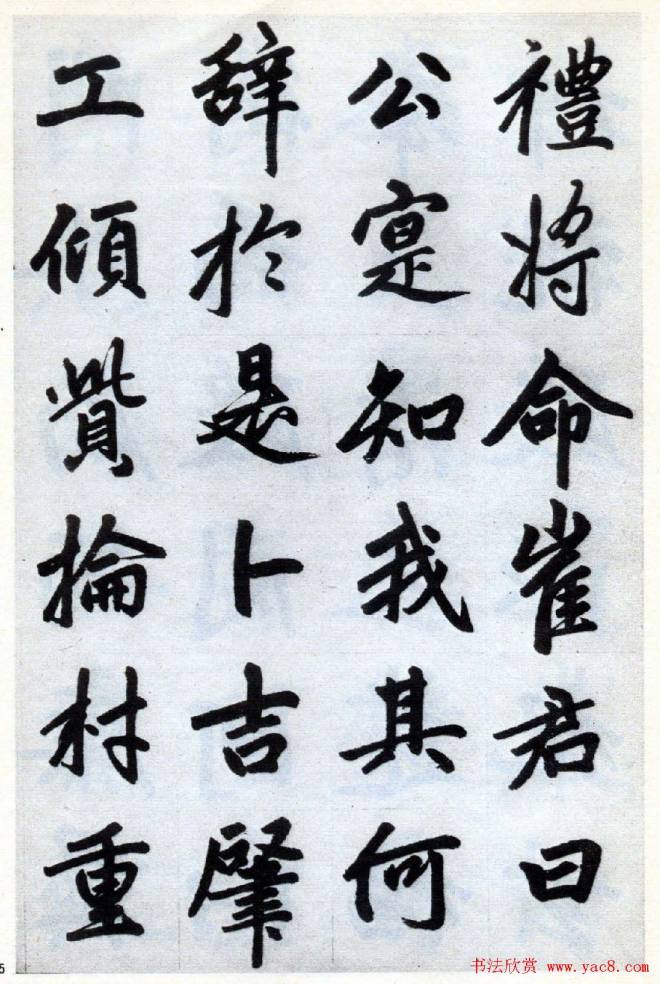 禮將命崔君曰
公寔知我其何
辭於是卜吉肇
工傾貲掄材重
5
书法欣赏 www.yac8.com